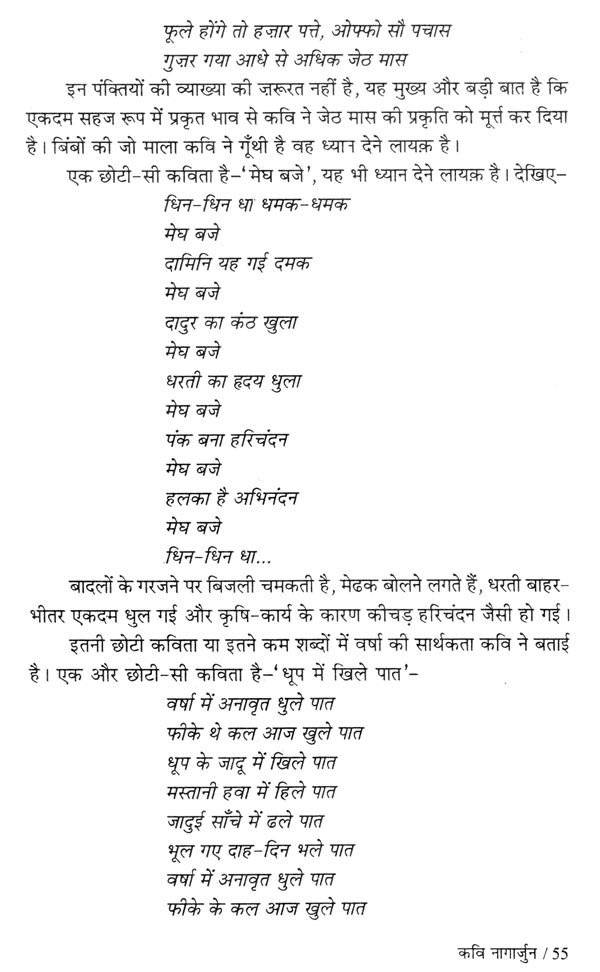 फूले होंगे तो हज़ार पत्ते, ओफ्फो सौ पचास
गुज़र गया आधे से अधिक जेठ मास
इन पंक्तियों की व्याख्या की ज़रूरत नहीं है, यह मुख्य और बड़ी बात है कि
एकदम सहज रूप में प्रकृत भाव से कवि ने जेठ मास की प्रकृति को मूर्त्त कर दिया
है। बिंबों की जो माला कवि ने गूँथी है वह ध्यान देने लायक़ है।
एक छोटी-सी कविता है–'मेघ बजे', यह भी ध्यान देने लायक़ है। देखिए–
धिन-धिन धा धमक-धमक
मेघ बजे
दामिनि यह गई दमक
मेघ बजे
दादुर का कंठ खुला
मेघ बजे
धरती का हृदय धुला
मेघ बजे
पंक बना हरिचंदन
मेघ बजे
हलका है अभिनंदन
मेघ बजे
धिन-धिन धा...
बादलों के गरजने पर बिजली चमकती है, मेढक बोलने लगते हैं, धरती बाहर-
भीतर एकदम धुल गई और कृषि-कार्य के कारण कीचड़ हरिचंदन जैसी हो गई।
इतनी छोटी कविता या इतने कम शब्दों में वर्षा की सार्थकता कवि ने बताई
है। एक और छोटी-सी कविता है–'धूप में खिले पात'–
वर्षा में अनावृत धुले पात
फीके थे कल आज खुले पात
धूप के जादू में खिले पात
मस्तानी हवा में हिले पात
जादुई साँचे में ढले पात
भूल गए दाह-दिन भले पात
वर्षा में अनावृत धुले पात
फीके के कल आज खुले पात
कवि नागार्जुन / 55